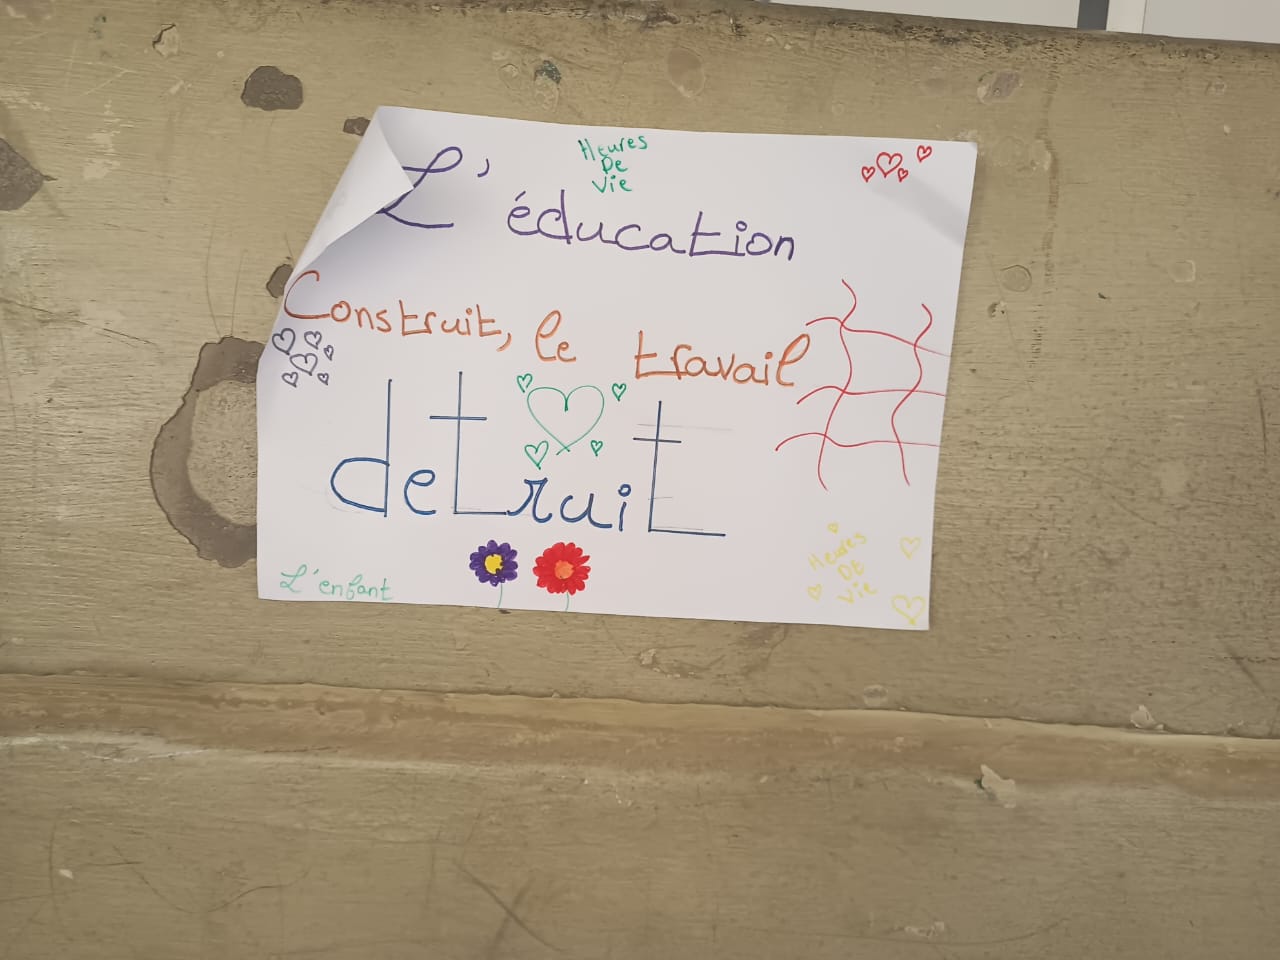 Heures
De
Vie
L'éducation
Construit, le travail
detruit
L'enfant
Heures
De
Vie